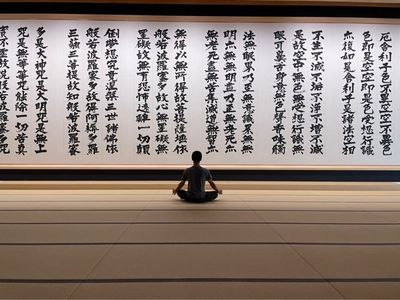 厄舍利子色不異空空不異色
色即是空空即是色受想行識
亦復如是舍利子是諸法空相
不生不滅不垢不淨不增不減
是故空中無色無受想行識
眼耳鼻舌身意無色聲香味觸
法無眼界乃至無意識界無無
明亦無無明盡乃至無老死亦
無老死盡無苦集滅道無智亦
無得以無所得故菩提薩埵依
般若波羅蜜多故心無罣礙無
罣礙故無有恐怖遠離一切顛
倒夢想究竟涅槃三世諸佛依
般若波羅蜜多故得阿耨多羅
三藐三菩提故知般若波羅蜜
多是大神咒是大明咒是無上
咒是無等等咒能除一切苦真
實不虛故說般若波羅蜜多